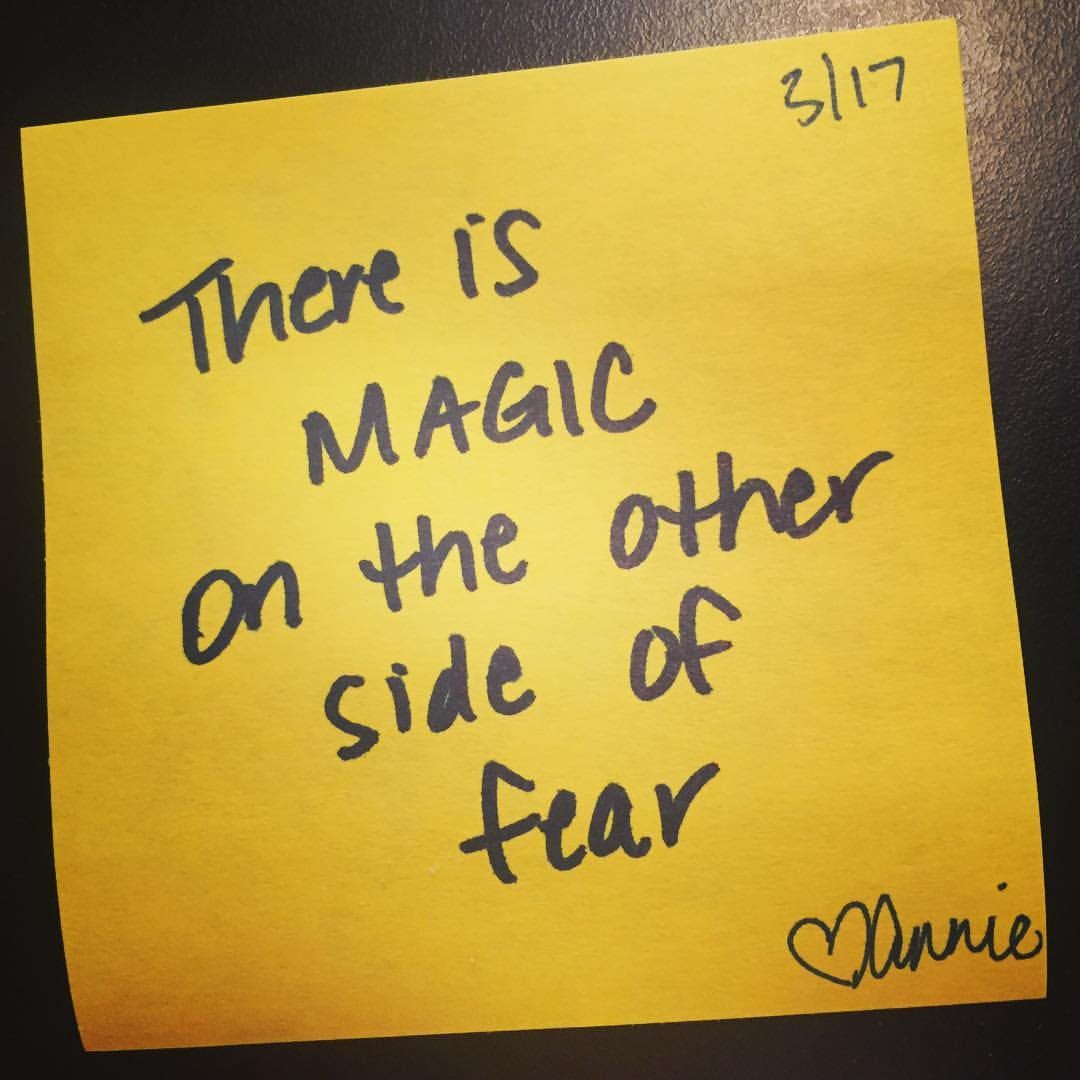 3/17
There is
MAGIC
on the other
side of
fear
♡Annie